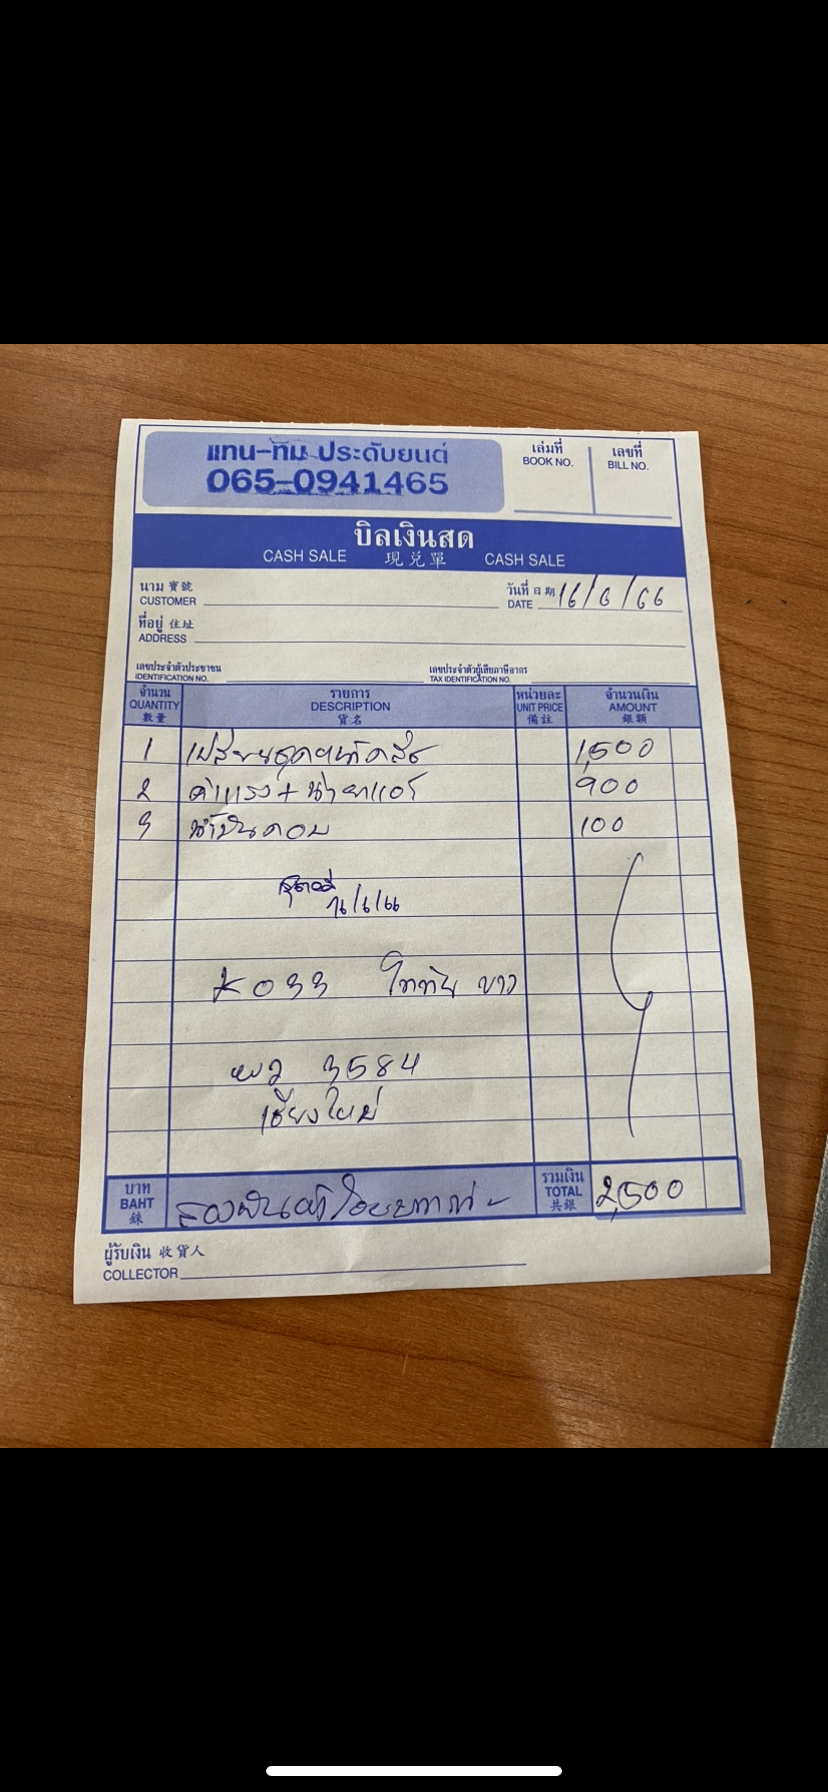 แทน-ทิม ประดับยนต์
065-0941465
เล่มที่
BOOK NO.
เลขที่
BILL NO.
บิลเงินสด
CASH SALE 現兌單 CASH SALE
นาม寶號
CUSTOMER
วันที่日期
DATE 16/6/66
ที่อยู่ 住址
ADDRESS
เลขประจำตัวประชาชน
IDENTIFICATION NO.
เลขประจำตัวผู้เสียภาษีอากร
TAX IDENTIFICATION NO.
จำนวน
QUANTITY
數量
รายการ
DESCRIPTION
貨名
หน่วยละ
UNIT PRICE
備註
จำนวนเงิน
AMOUNT
銀額
1 1,500
2 ค่าแรง + น้ำยาแอร์ 900
3 น้ำมันคอม 100
16/6/66
K033 ไททัน ขาว
3584
เชียงใหม่
บาท
BAHT
銖
สองพันห้าร้อยบาทถ้วน
รวมเงิน
TOTAL
共銀
2,500
ผู้รับเงิน 收貨人
COLLECTOR